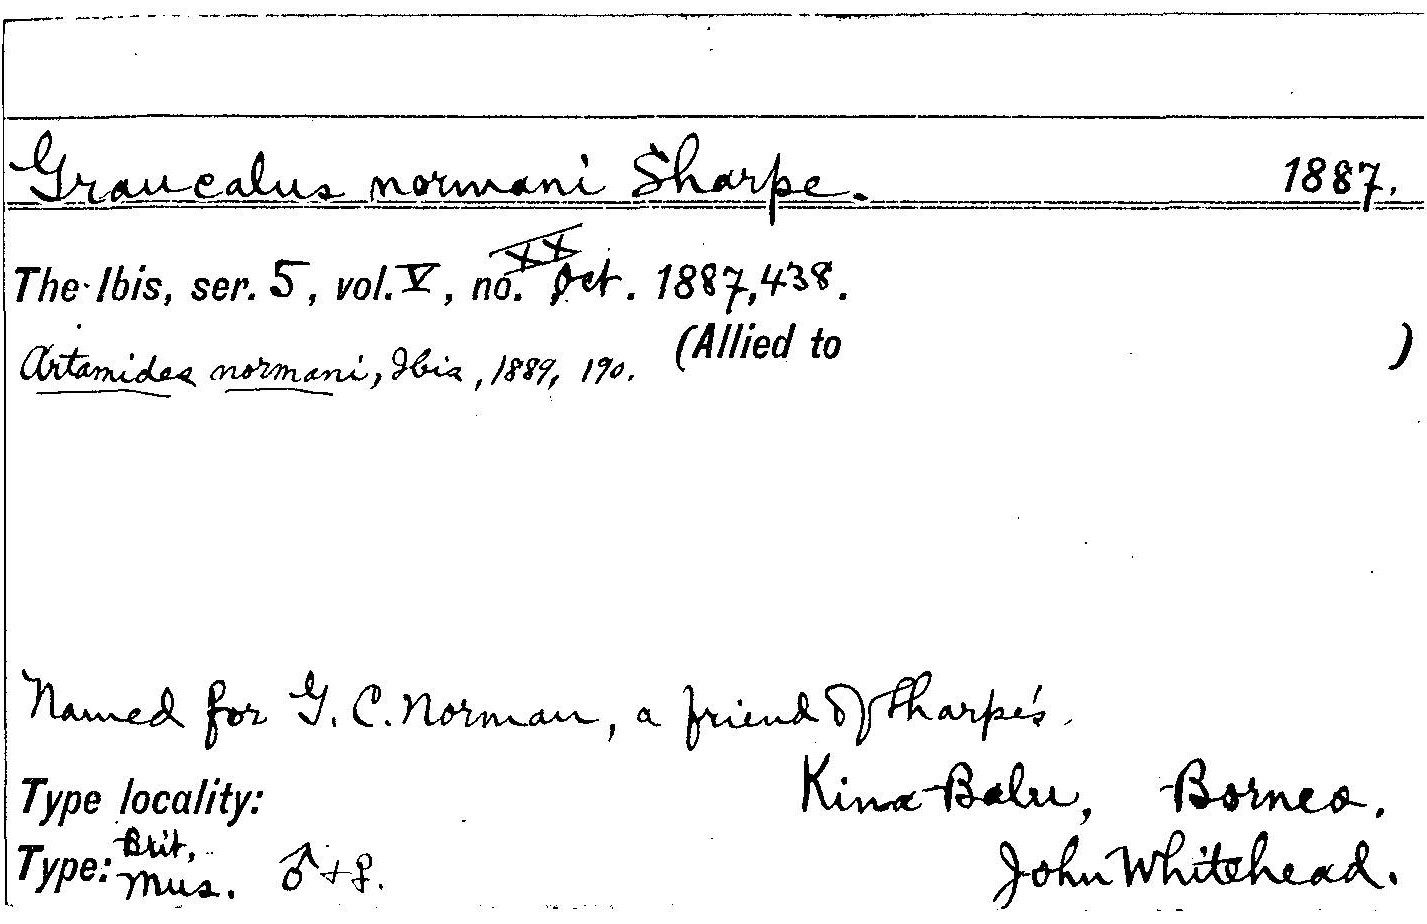 Graucalus normani Sharpe. 1887.
The Ibis, ser. 5, vol. V, no. XX Oct. 1887, 438.
(Allied to )
Artamides normani, Ibis, 1889, 190.
Named for G. C. Norman, a friend of Sharpe's.
Type locality: Kina Balu, Borneo.
Type: Brit. Mus. ♂ + ♀. John Whitehead.